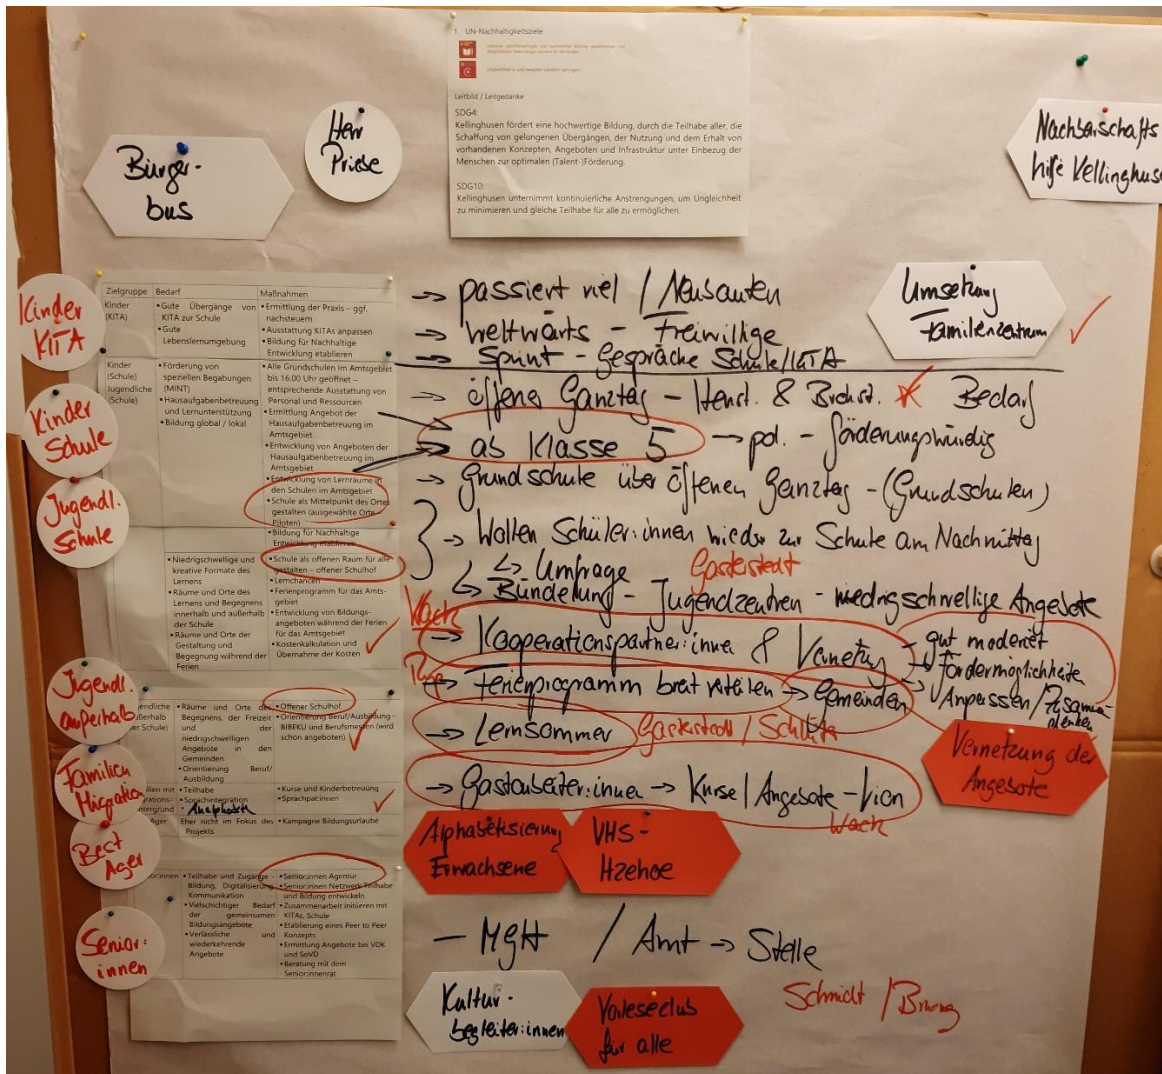 1. UN-Nachhaltigkeitsziele
Leitbild / Leitgedanke
SDG4:
Kellinghusen fördert eine hochwertige Bildung, durch die Teilhabe aller, die
Schaffung von gelungenen Übergängen, der Nutzung und dem Erhalt von
vorhandenen Konzepten, Angeboten und Infrastruktur unter Einbezug der
Menschen zur optimalen (Talent-)Förderung.
SDG10:
Kellinghusen unternimmt kontinuierliche Anstrengungen, um Ungleichheit
zu minimieren und gleiche Teilhabe für alle zu ermöglichen.
Bürger-
bus
Herr
Priese
Nachbarschafts
hilfe Kellinghuse
Umsetzung
Familienzentrum
Kinder
KITA
Kinder
Schule
Jugendl.
Schule
Jugendl.
außerhalb
Familien
Migration
Best
Ager
Senior:
innen
Zielgruppe Bedarf Maßnahmen
Kinder
(KITA)
• Gute Übergänge von
KITA zur Schule
• Gute
Lebenslernumgebung
• Ermittlung der Praxis – ggf.
nachsteuern
• Ausstattung KITAs anpassen
• Bildung für Nachhaltige
Entwicklung etablieren
Kinder
(Schule)
Jugendliche
(Schule)
• Förderung von
speziellen Begabungen
(MINT)
• Hausaufgabenbetreuung
und Lernunterstützung
• Bildung global / lokal
• Alle Grundschulen im Amtsgebiet
bis 16.00 Uhr geöffnet –
entsprechende Ausstattung von
Personal und Ressourcen
• Ermittlung Angebot der
Hausaufgabenbetreuung im
Amtsgebiet
• Entwicklung von Angeboten der
Hausaufgabenbetreuung im
Amtsgebiet
• Entwicklung von Lernräume in
den Schulen im Amtsgebiet
• Schule als Mittelpunkt des Ortes
gestalten (ausgewählte Orte
Piloten)
• Bildung für Nachhaltige
Entwicklung etablieren
• Niedrigschwellige und
kreative Formate des
Lernens
• Räume und Orte des
Lernens und Begegnens
innerhalb und außerhalb
der Schule
• Räume und Orte der
Gestaltung und
Begegnung während der
Ferien
• Schule als offenen Raum für alle
gestalten – offener Schulhof
• Lernchancen
• Ferienprogramm für das Amts-
gebiet
• Entwicklung von Bildungs-
angeboten während der Ferien
für das Amtsgebiet
• Kostenkalkulation und
Übernahme der Kosten
endliche
ßerhalb
er Schule)
• Räume und Orte des
Begegnens, der Freizeit
und der
niedrigschwelligen
Angebote in den
Gemeinden
• Orientierung Beruf/
Ausbildung
• Offener Schulhof
• Orientierung Beruf/Ausbildung –
BIBEKU und Berufsmessen (wird
schon angeboten)
ilien mit
grations-
ntergrund
• Teilhabe
• Sprachintegration
• Kurse und Kinderbetreuung
• Sprachpat:innen
Ager
Eher nicht im Fokus des
Projekts
• Kampagne Bildungsurlaube
or:innen
• Teilhabe und Zugänge -
Bildung, Digitalisierung,
Kommunikation
• Vielschichtiger Bedarf
der gemeinsamen
Bildungsangebote
• Verlässliche und
wiederkehrende
Angebote
• Senior:innen Agentur
• Senior:innen Netzwerk Teilhabe
und Bildung entwickeln
• Zusammenarbeit initiieren mit
KITAs, Schule
• Etablierung eines Peer to Peer
Konzepts
• Ermittlung Angebote bei VDK
und SoVD
• Beratung mit dem
Senior:innenrat
→ passiert viel / Neubauten
→ weltwärts – Freiwillige
→ Sprint – Gespräche Schule/KITA
→ öffener Ganztag – Henst. & Brokst. Bedarf
→ ab Klasse 5 → pol. – förderungswürdig
→ Grundschule über öffenen Ganztag – (Grundschulen)
→ Wollen Schüler:innen wieder zur Schule am Nachmittag
↳ Umfrage
↳ Bündelung – Jugendzentren – niedrigschwellige Angebote
→ Kooperationspartner:innen & Vernetzung
→ gut moderiert
→ Fördermöglichkeiten
→ Anpassen/
→ Ferienprogramm breit → Gemeinden
→ Lernsommer / Schule
→ Gastarbeiter:innen → Kurse / Angebote –
Vernetzung der
Angebote
Alphabetisierung
Erwachsene
VHS-
Itzehoe
– MGH / Amt → Stelle
Kultur-
begleiter:innen
Vorleseclub
für alle
Schmidt /